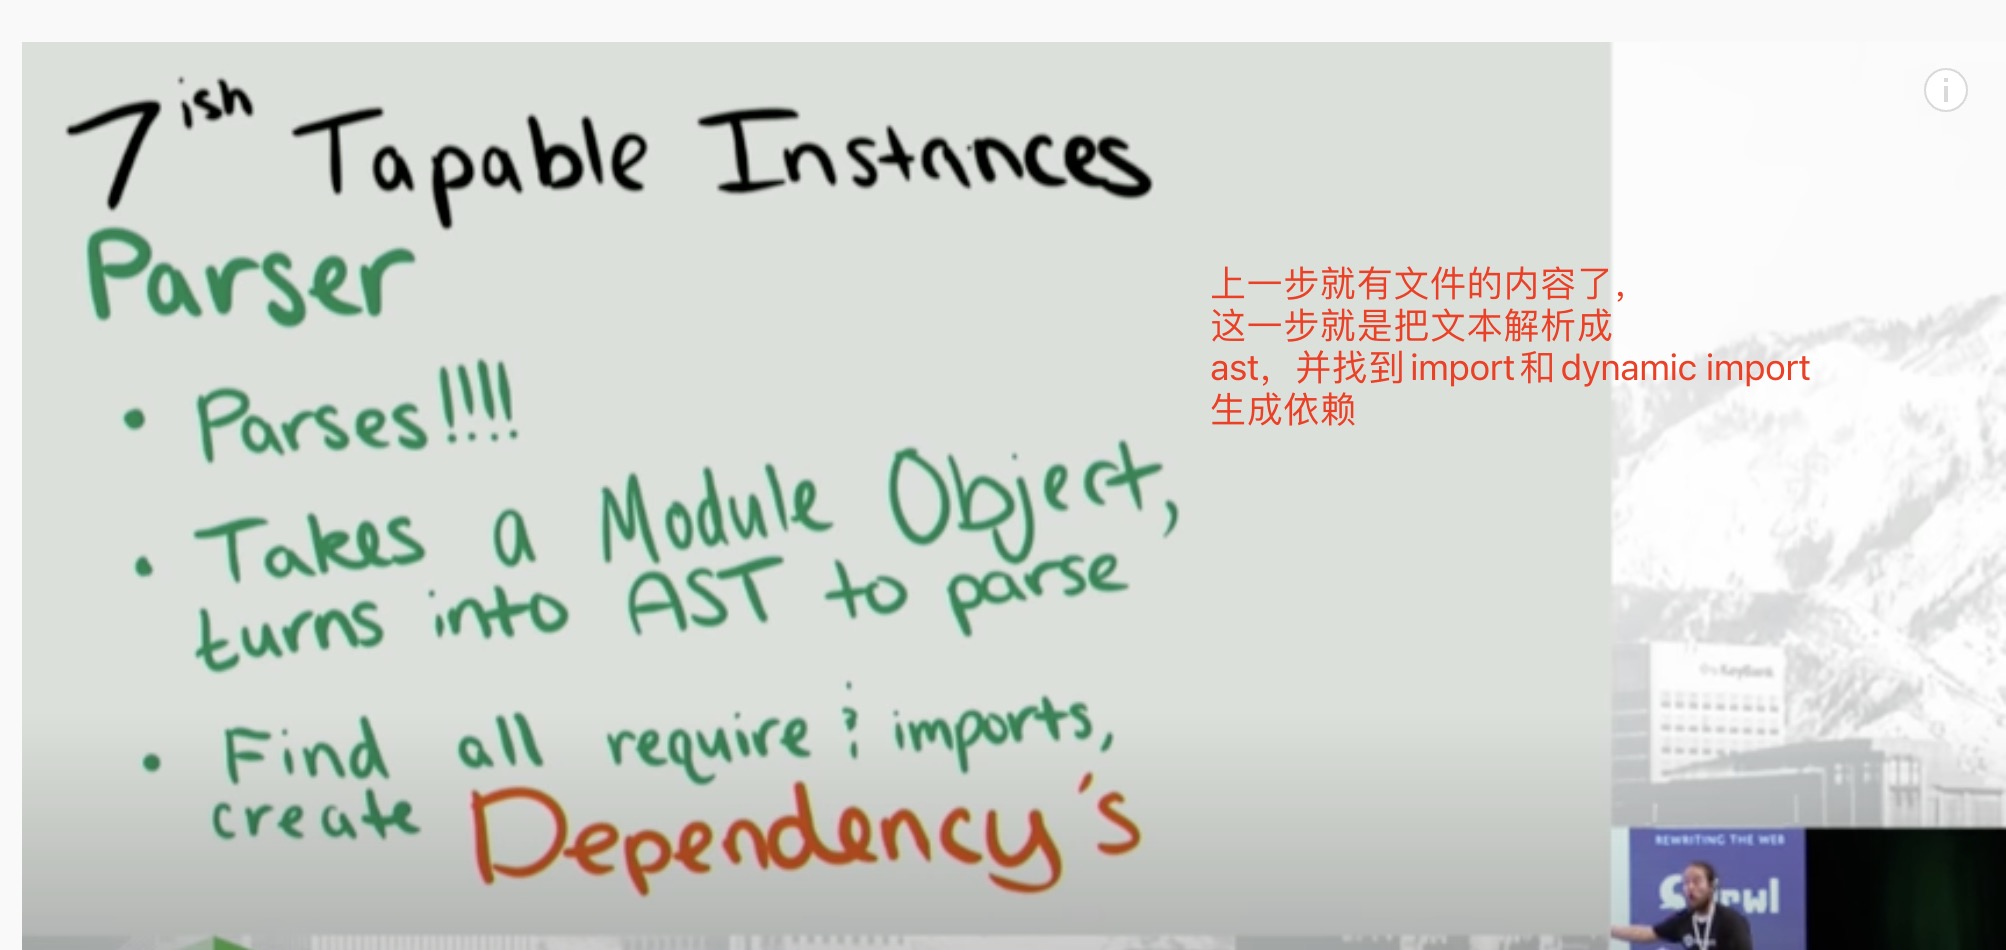 7ish Tapable Instances
Parser
• Parses!!!!
• Takes a Module Object,
turns into AST to parse
• Find all require & imports,
create Dependency's
上一步就有文件的内容了，
这一步就是把文本解析成
ast，并找到import和dynamic import
生成依赖
KeyBank
REWRITING THE WEB